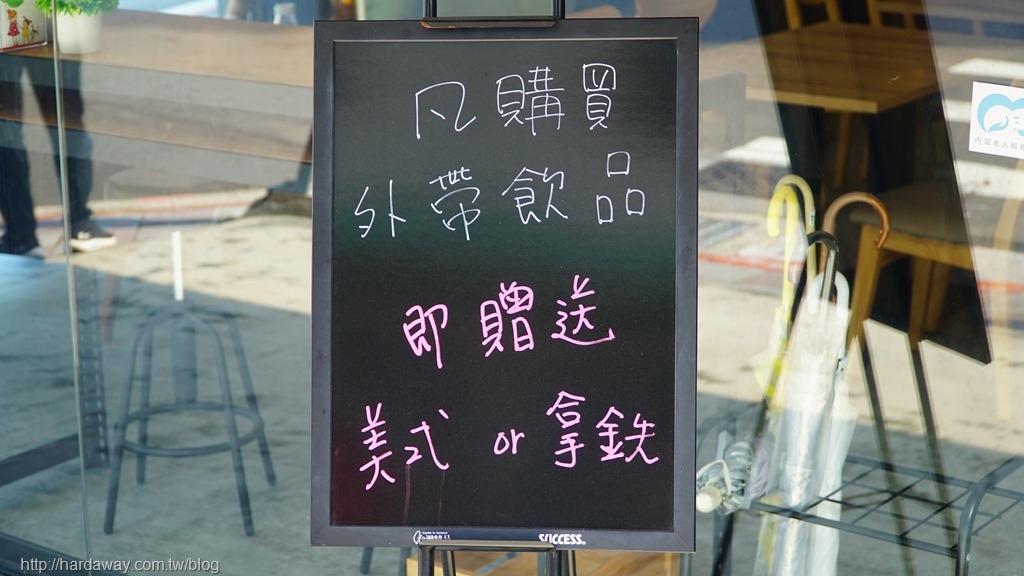 凡購買
外帶飲品
即贈送
美式 or 拿鐵
SUCCESS
http://hardaway.com.tw/blog